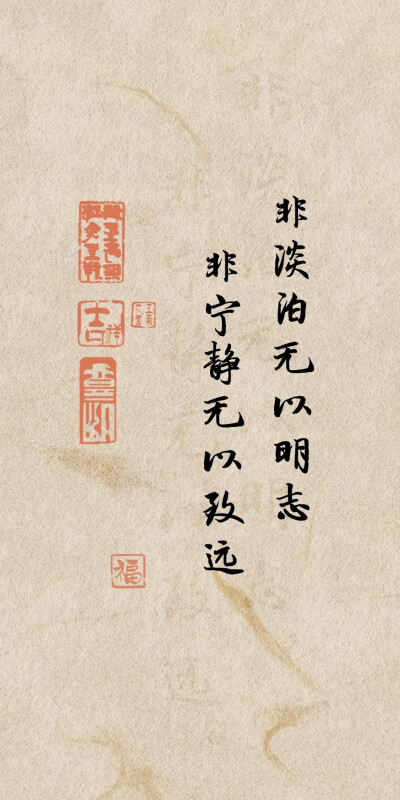 非淡泊无以明志
非宁静无以致远
吉祥
福